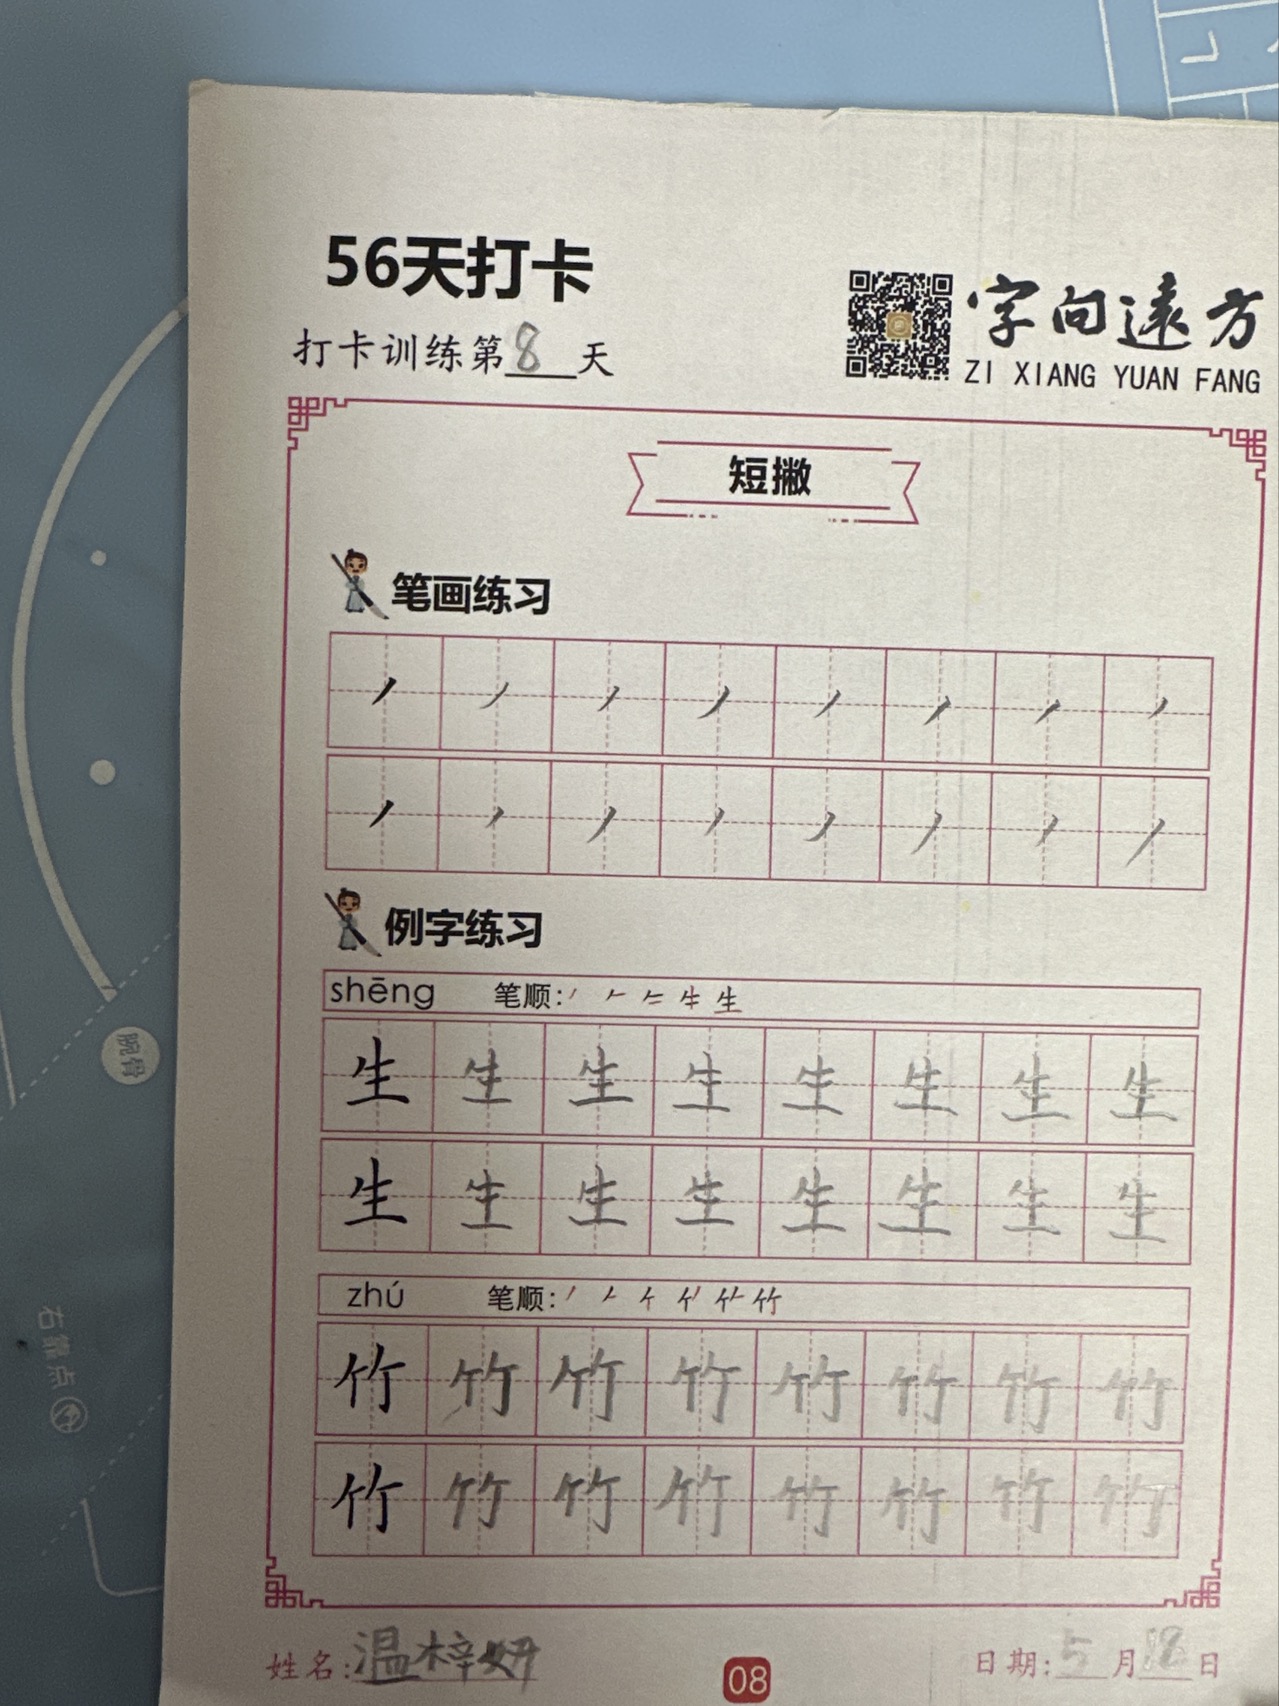 56天打卡
打卡训练第8天
字向遠方
ZI XIANG YUAN FANG
短撇
笔画练习
丿 丿 丿 丿 丿 丿 丿 丿
丿 丿 丿 丿 丿 丿 丿 丿
例字练习
shēng 笔顺: 生
生 生 生 生 生 生 生 生
生 生 生 生 生 生 生 生
zhú 笔顺: 竹
竹 竹 竹 竹 竹 竹 竹 竹
竹 竹 竹 竹 竹 竹 竹 竹
姓名:温梓妍
08
日期:5月18日
腕骨
右锚点